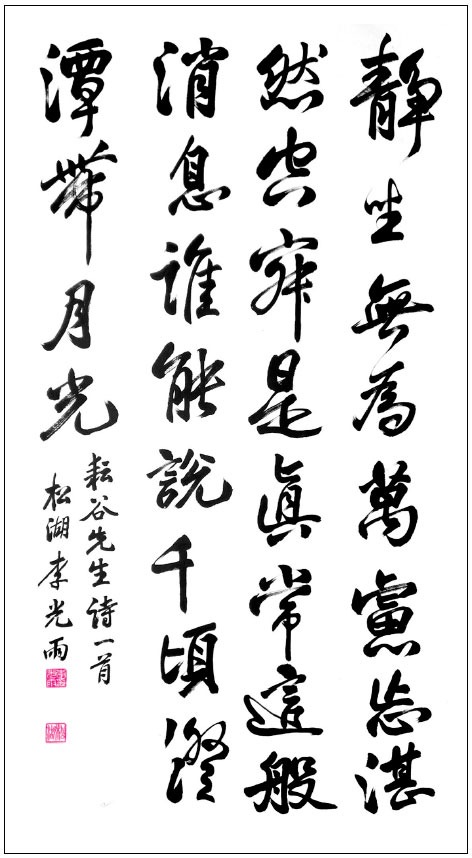 靜坐無為萬慮忘湛
然空寂是眞常這般
消息誰能說千頃澄
潭帶月光
耘谷先生詩一首
松湖李光雨